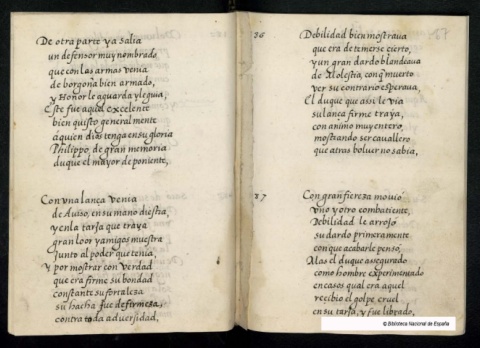 De otra parte ya salia
un defensor muy nombrado,
que con las armas venia
de borgoña bien armado,
y Honor le aguarda y leguia,
Este fue aquel excelente
bien quisto generalmente
a quien dios tenga en su gloria
Philippo, de gran memoria
duque el mayor de poniente,
Con vna lança venia
de Auiso, en su mano diestra,
y en la tarja que traya
gran loor y amigos muestra
Junto al poder que tenia,
Y por mostrar con verdad
que era firme su bondad
constante su fortaleza
su hacha fue de firmeza,
contra toda aduersidad,
36
Debilidad bien mostraua
que era de temerse cierto,
y un gran dardo blandeaua
de Molestia, con q̃ muerto
ver su contrario esperaua,
El duque que assi le via
su lança firme traya,
con animo muy entero,
mostrando ser cauallero
que atras boluer no sabia,
37
Con gran fiereza mouio
vno y otro combatiente,
Debilidad le arrojo
su dardo primeramente
con que acabarle penso,
Mas el duque assegurado
como hombre experimentado
en casos qual era aquel
recibio el golpe cruel
en su tarja, y fue librado,
© Biblioteca Nacional de España